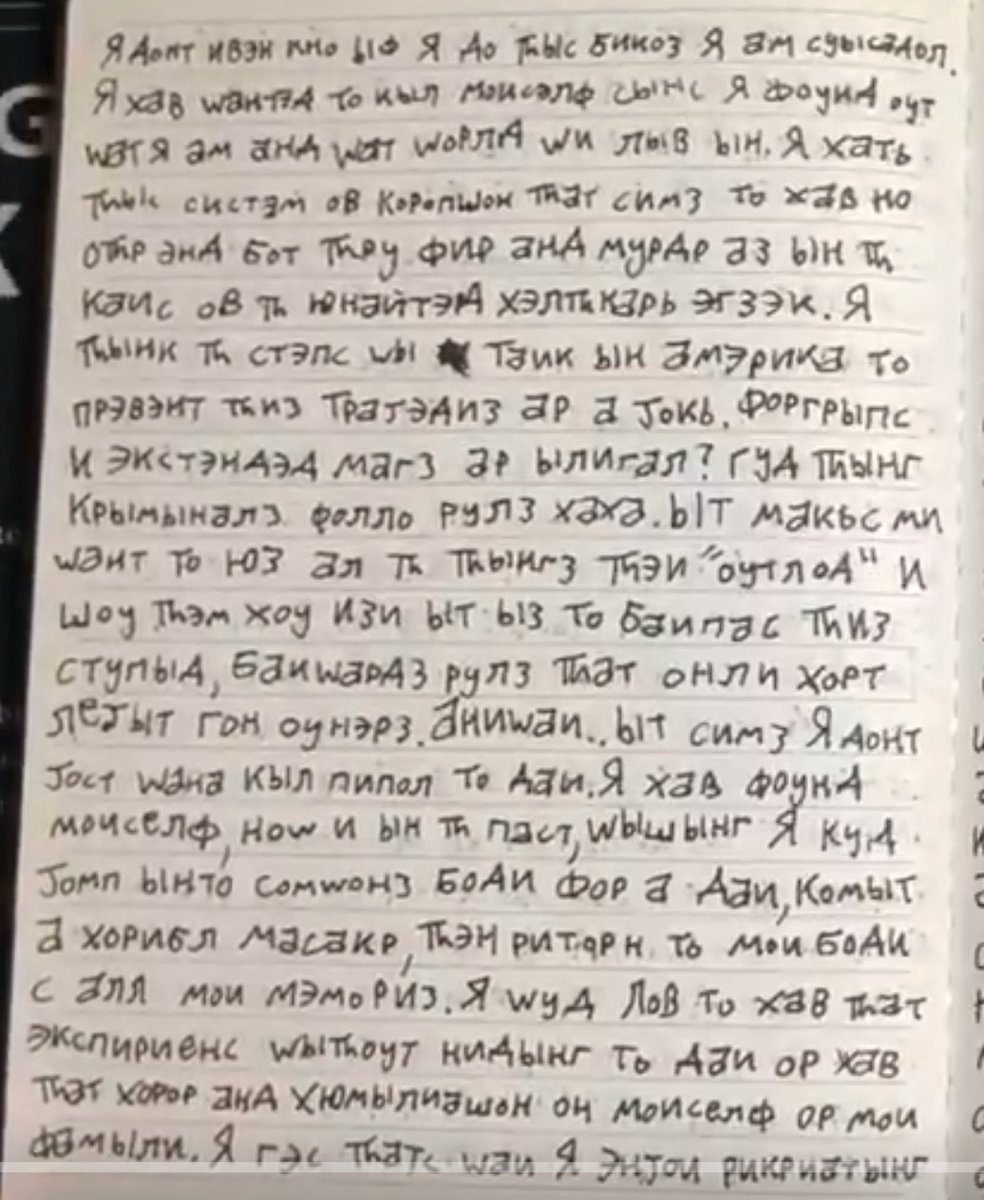 Я донт ивэн кно ыф Я до тһыс бикоз Я ам суысадол.
Я хав wантэд то кыл моисэлф сынс Я фоунд оут
wат Я ам анд wат wорлд wи лыв ын. Я хать
тһыс систэм ов коропшон тһат симз то хав но
отһр энд бот тһру фир анд мурдр аз ын тһ
каис ов тһ юнайтэд хэлтһкарь эгзэк. Я
тһынк тһ стэпс wы таик ын америка то
прэвэнт тһиз трагэдиз ар а Јокь. Форгрыпс
и экстэндэд магз ар ылигал? гуд тһынг
крымыналз фолло рулз хаха. ыт макьс ми
wант то юз ал тһ тһынгз тһэи "оутлоd" и
шоу тһэм хоу изи ыт ыз то баипас тһиз
ступыд, баиwардз рулз тһат онли хорт
леЈыт гон оунэрз. аниwаи.. ыт симз Я донт
Јост wана кыл пипол то даи. Я хав фоунд
моиселф, ноw и ын тһ паст, wышынг Я куд
Јомп ынто сомwонз боди фор а даи, комыт
а хорибл масакр, тһэн риторн то мои боди
с алл мои мэмориз. Я wуд лов то хав тһат
экспириенс wытһоут нидынг то даи ор хав
тһат хорор анд хюмылиашон он моиселф ор мои
фамыли. Я гэс тһатс wаи Я энЈои рикриатынг